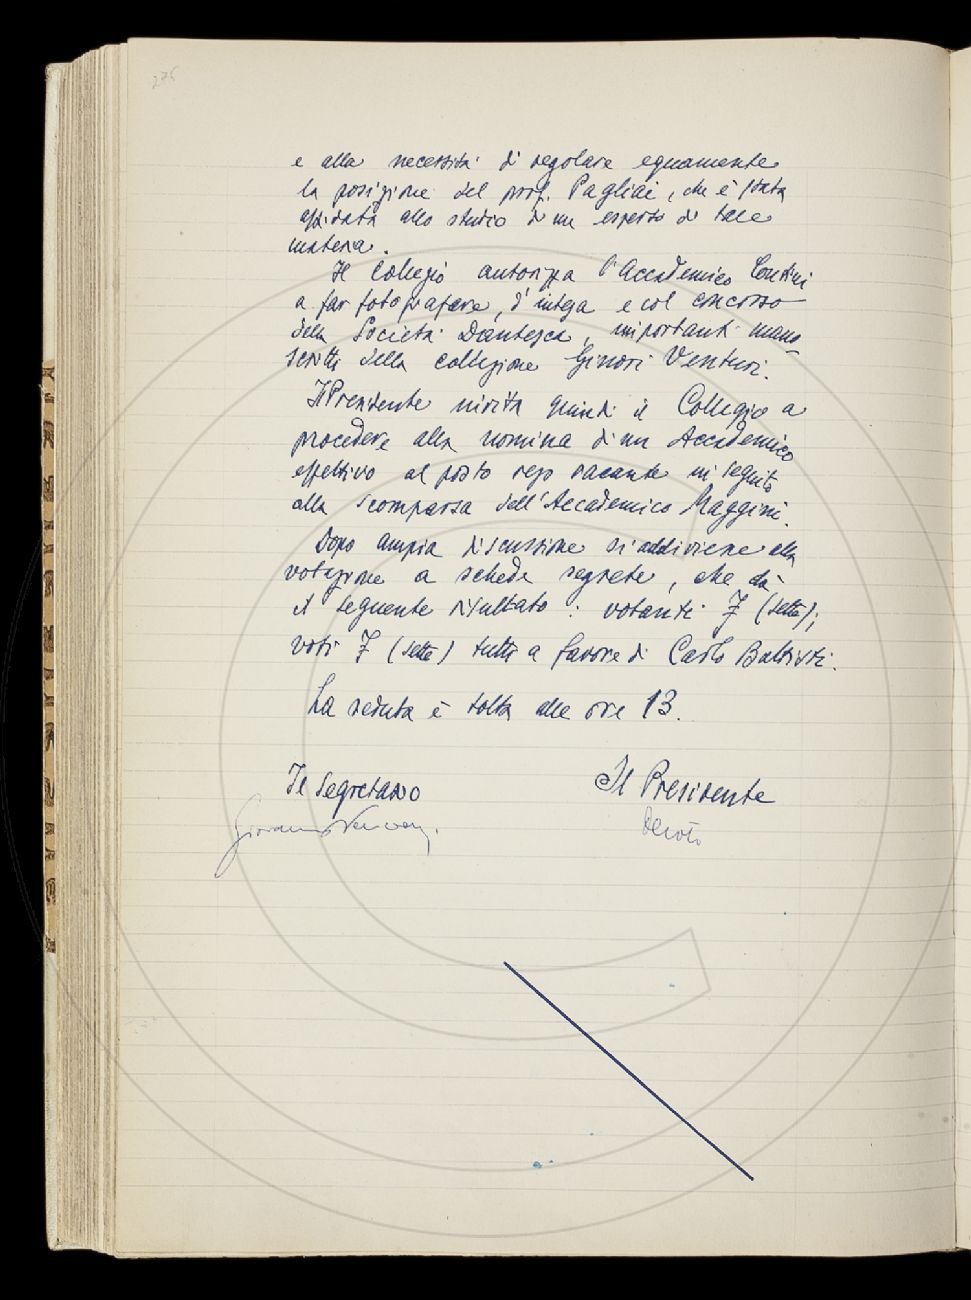 276
e alla necessità di regolare equamente
la posizione del prof. Pagliai, che è stata
affidata allo studio di un esperto di tale
materia.
Il Collegio autorizza l'Accademico Contini
a far fotografare, d'intesa e col concorso
della Società Dantesca, importanti mano-
scritti della collezione Ginori Venturi.
Il Presidente invita quindi il Collegio a
procedere alla nomina di un Accademico
effettivo al posto reso vacante in seguito
alla scomparsa dell'Accademico Maggini.
Dopo ampia discussione si addiviene alla
votazione a schede segrete, che dà
il seguente risultato: votanti 7 (sette);
voti 7 (sette) tutti a favore di Carlo Battisti.
La seduta è tolta alle ore 13.
Il Segretario Il Presidente
Giovanni Nencioni Devoto